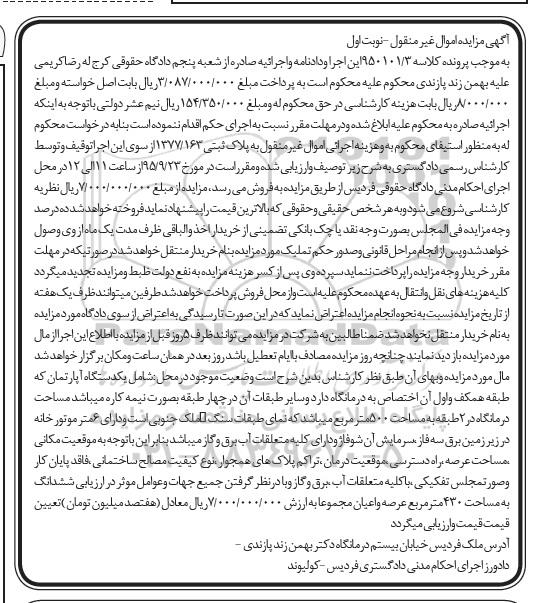 آگهی مزایده اموال غیر منقول - نوبت اول
به موجب پرونده کلاسه ۹۵۰۱۰۱/۳ این اجرا و دادنامه و اجرائیه صادره از شعبه پنجم دادگاه حقوقی کرج له رضا کریمی
علیه بهمن زند پازندی محکوم علیه محکوم است به پرداخت مبلغ ۳/۰۸۷/۰۰۰/۰۰۰ ریال بابت اصل خواسته و مبلغ
۸/۰۰۰/۰۰۰ ریال بابت هزینه کارشناسی در حق محکوم له و مبلغ ۱۵۴/۳۵۰/۰۰۰ ریال نیم عشر دولتی با توجه به اینکه
اجرائیه صادره به محکوم علیه ابلاغ شده و در مهلت مقرر نسبت به اجرای حکم اقدام ننموده است بنا به درخواست محکوم
له به منظور استیفای محکوم به و هزینه اجرائی اموال غیر منقول به پلاک ثبتی ۱۳۷۷/۱۶۳ از سوی این اجرا توقیف و توسط
کارشناس رسمی دادگستری به شرح زیر توصیف و ارزیابی شده و مقرر است در مورخ ۹۵/۹/۲۳ از ساعت ۱۱ الی ۱۲ در محل
اجرای احکام مدنی دادگاه حقوقی فردیس از طریق مزایده به فروش می رسد، مزایده از مبلغ ۷/۰۰۰/۰۰۰/۰۰۰ ریال نظریه
کارشناسی شروع می شود و به هر شخص حقیقی و حقوقی که بالاترین قیمت را پیشنهاد نماید فروخته خواهد شد ده درصد
وجه مزایده فی المجلس بصورت وجه نقد یا چک بانکی تضمینی از خریدار اخذ و الباقی ظرف مدت یک ماه از وی وصول
خواهد شد و پس از انجام مراحل قانونی و صدور حکم تملیک مورد مزایده بنام خریدار منتقل خواهد شد در صورتیکه در مهلت
مقرر خریدار وجه مزایده را پرداخت ننماید سپرده وی پس از کسر هزینه مزایده به نفع دولت ظبط و مزایده تجدید میگردد
کلیه هزینه های نقل و انتقال به عهده محکوم علیه است و از محل فروش پرداخت خواهد شد طرفین میتوانند ظرف یک هفته
از تاریخ مزایده نسبت به نحوه انجام مزایده اعتراض نماید که در این صورت تا رسیدگی به اعتراض از سوی دادگاه مورد مزایده
به نام خریدار منتقل نخواهد شد ضمنا طالبین به شرکت در مزایده می توانند ظرف ۵ روز قبل از مزایده با اطلاع این اجرا از مال
مورد مزایده باز دید نمایند چنانچه روز مزایده مصادف با ایام تعطیل باشد روز بعد در همان ساعت و مکان برگزار خواهد شد
مال مورد مزایده و بهای آن طبق نظر کارشناس بدین شرح است وضعیت موجود در محل: شامل یکدستگاه آپارتمان که
طبقه همکف و اول آن اختصاص به درمانگاه دارد و سایر طبقات آن در چهار طبقه بصورت نیمه کاره میباشد مساحت
درمانگاه در ۲ طبقه به مساحت ۵۰۰ متر مربع میباشد که نمای طبقات سنگ ملک جنوبی است و دارای ۶ متر موتور خانه
در زیر زمین برق سه فاز، سرمایش آن شوفاژ و دارای کلیه متعلقات آب برق و گاز میباشد بنابر این با توجه به موقعیت مکانی
،مساحت عرصه، راه دسترسی، موقعیت درمان، تراکم پلاک های همجوار، نوع کیفیت مصالح ساختمانی، فاقد پایان کار
وصور تمجلس تفکیکی، با کلیه متعلقات آب، برق و گاز و با در نظر گرفتن جمیع جهات و عوامل موثر در ارزیابی ششدانگ
به مساحت ۴۳۰ متر مربع عرصه و اعیان مجموعا به ارزش ۷/۰۰۰/۰۰۰/۰۰۰ ریال معادل (هفتصد میلیون تومان) تعیین
قیمت قیمت و ارزیابی میگردد
آدرس ملک فردیس خیابان بیستم درمانگاه دکتر بهمن زند پازندی -
دادورز اجرای احکام مدنی دادگستری فردیس - کولیوند